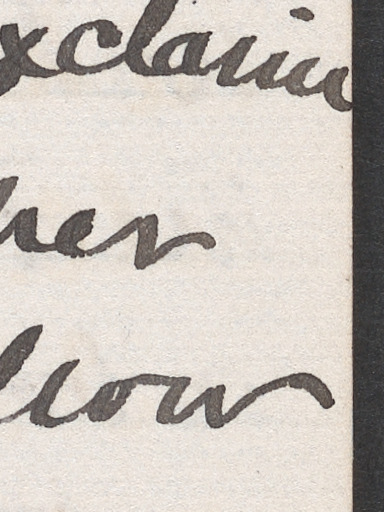 xclaim
her
how